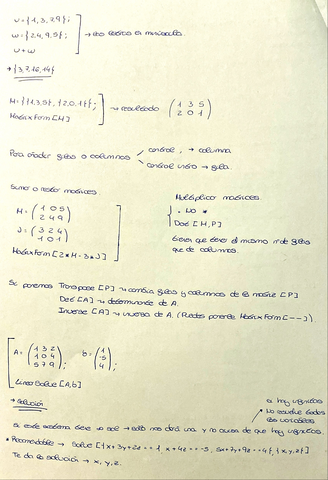 v = {1, 3, 7, 9};
w = {2, 4, 9, 5};
v + w
→ {3, 7, 16, 14}
M = {{1,3,5}, {2,0,1}};
MatrixForm[M]
→ resultado (1 3 5
2 0 1)
Para añadir filas o columnas
control , → columna
control intro → fila.
Sumar o restar matrices
M = (1 0 5
2 4 9)
J = (3 2 4
1 0 1)
MatrixForm[2*M - 3*J]
Multiplicar matrices.
. No *
Dot [M,P]
tienen que tener el mismo nº de filas
que de columnas.
Si ponemos Transpose [P] → cambia filas y columnas de la matriz [P]
Det [A] → determinante de A.
Inverse [A] → inversa de A. (Puedes ponerle MatrixForm [---]).
A = (1 3 2
1 0 4
5 7 9);
b = (1
-5
4);
LinearSolve [A,b]
→ Solución
Si este sistema tiene ∞ sol → solo nos dará una y no avisa de que hay infinitas.
si hay infinitas
No resuelve todas
las variables
* Recomendable → Solve [{x+3y+2z==1, x+4z==-5, 5x+7y+9z==4}, {x,y,z}]
Te da la solución → x, y, z.